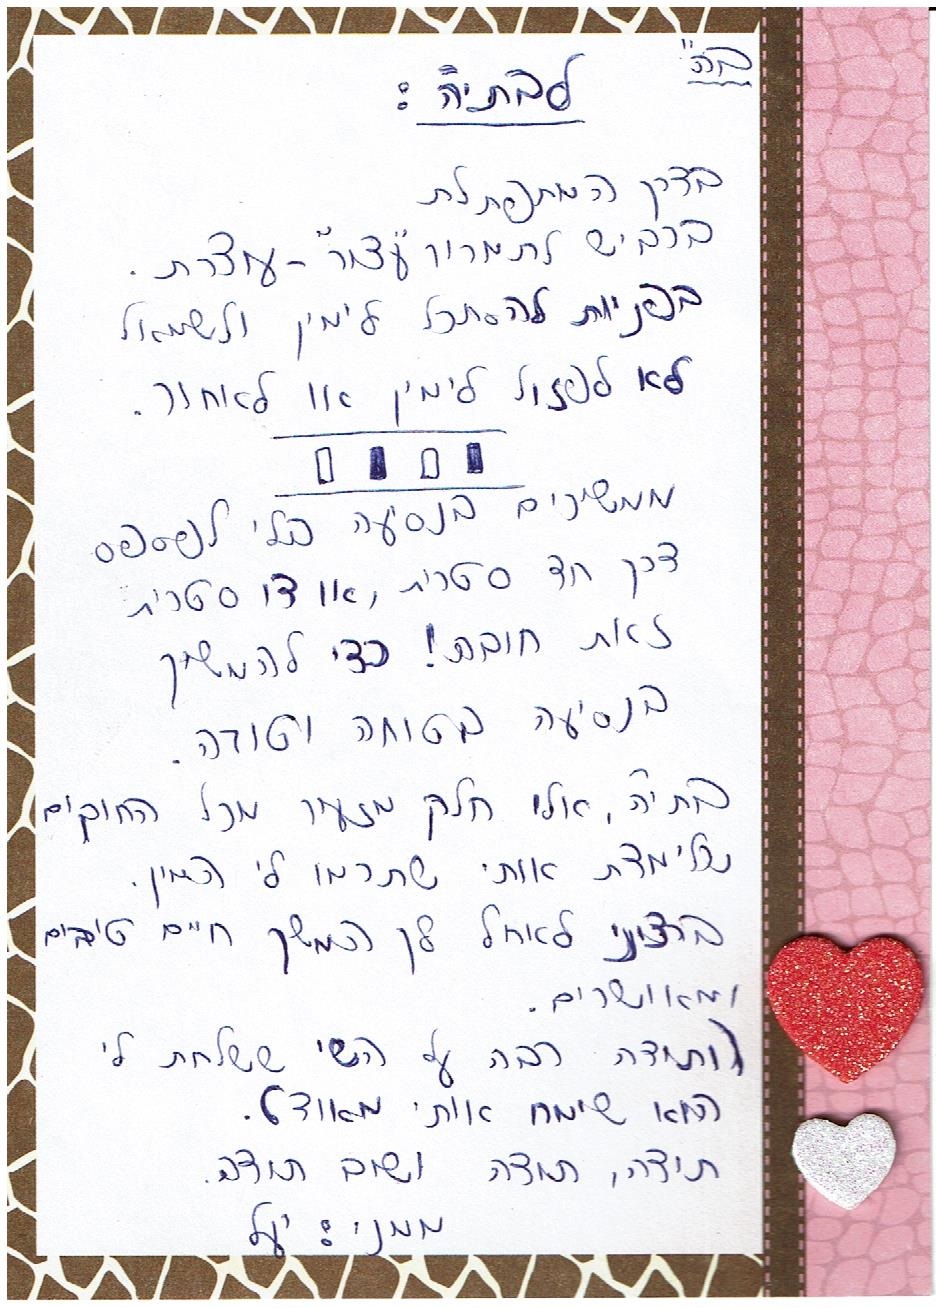 בה"
לבתיה:
בדרך המתפתלת
ברכיש לתמרור "עצור" - עוצרת.
בפניות להסתכל לימין ולשמאול
לא לפזול לימין או לאחור.
ממשיכים בנסיעה בלי לפספס
דרך חד סטרית, או דו סטרית
זאת חובת! כדי להמשיך
בנסיעה בטוחה וטודה.
בתיה, אולי חלק מזעיר מכל החוקים
שלימדת אותי שתרמו לי המון.
ברצוני לאחל לך המשך חיים טובים
ומאושרים.
ותודה רבה על השי ששלחת לי
הוא שימח אותי מאוד.
תודה, תודה ושוב תודה.
ממני: יעל